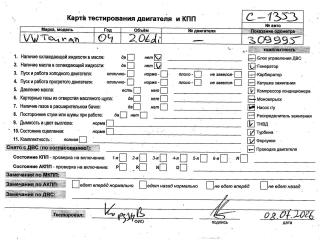 Карта тестирования двигателя и КПП
С-1353
№ авто
Марка, модель Год Объём № двигателя Показания одометра
VW Touran 04 2.0tdi — 309995
комплектность
1. Наличие охлаждающей жидкости в масле: да нет
2. Наличие масла в охлаждающей жидкости: да нет
3. Пуск и работа холодного двигателя: отлично норма плохо не завелся
4. Пуск и работа горячего двигателя: отлично норма плохо не завелся
5. Давление масла: есть нет
6. Картерные газы из отверстия масляного щупа: есть нет
7. Наличие газов в расширительном бачке: есть нет
8. Посторонние стуки или шумы при работе: да нет
9. Дымность и цвет выхлопа: норма
10. Состояние сцепления: норма
11. Комплектность: полный
Блок управления ДВС
Генератор
Карбюратор
Катушка зажигания
Компрессор кондиционера
Моновпрыск
Насос гту
Распределитель зажигания
ТНВД
Турбина
Форсунки
Проводка двигателя
Снято с ДВС (по согласованию):
Состояние КПП - проверка на включение: 1-я 2-я 3-я 4-я 5-я 6-я
Состояние АКПП - проверка на включение: P R N D
Замечания по МКПП:
Замечания по АКПП: едет вперёд нормально едет назад нормально не едет вперёд не едет назад
Замечания по ДВС:
Тестировал:
ФИО подпись дата
08.07.2026